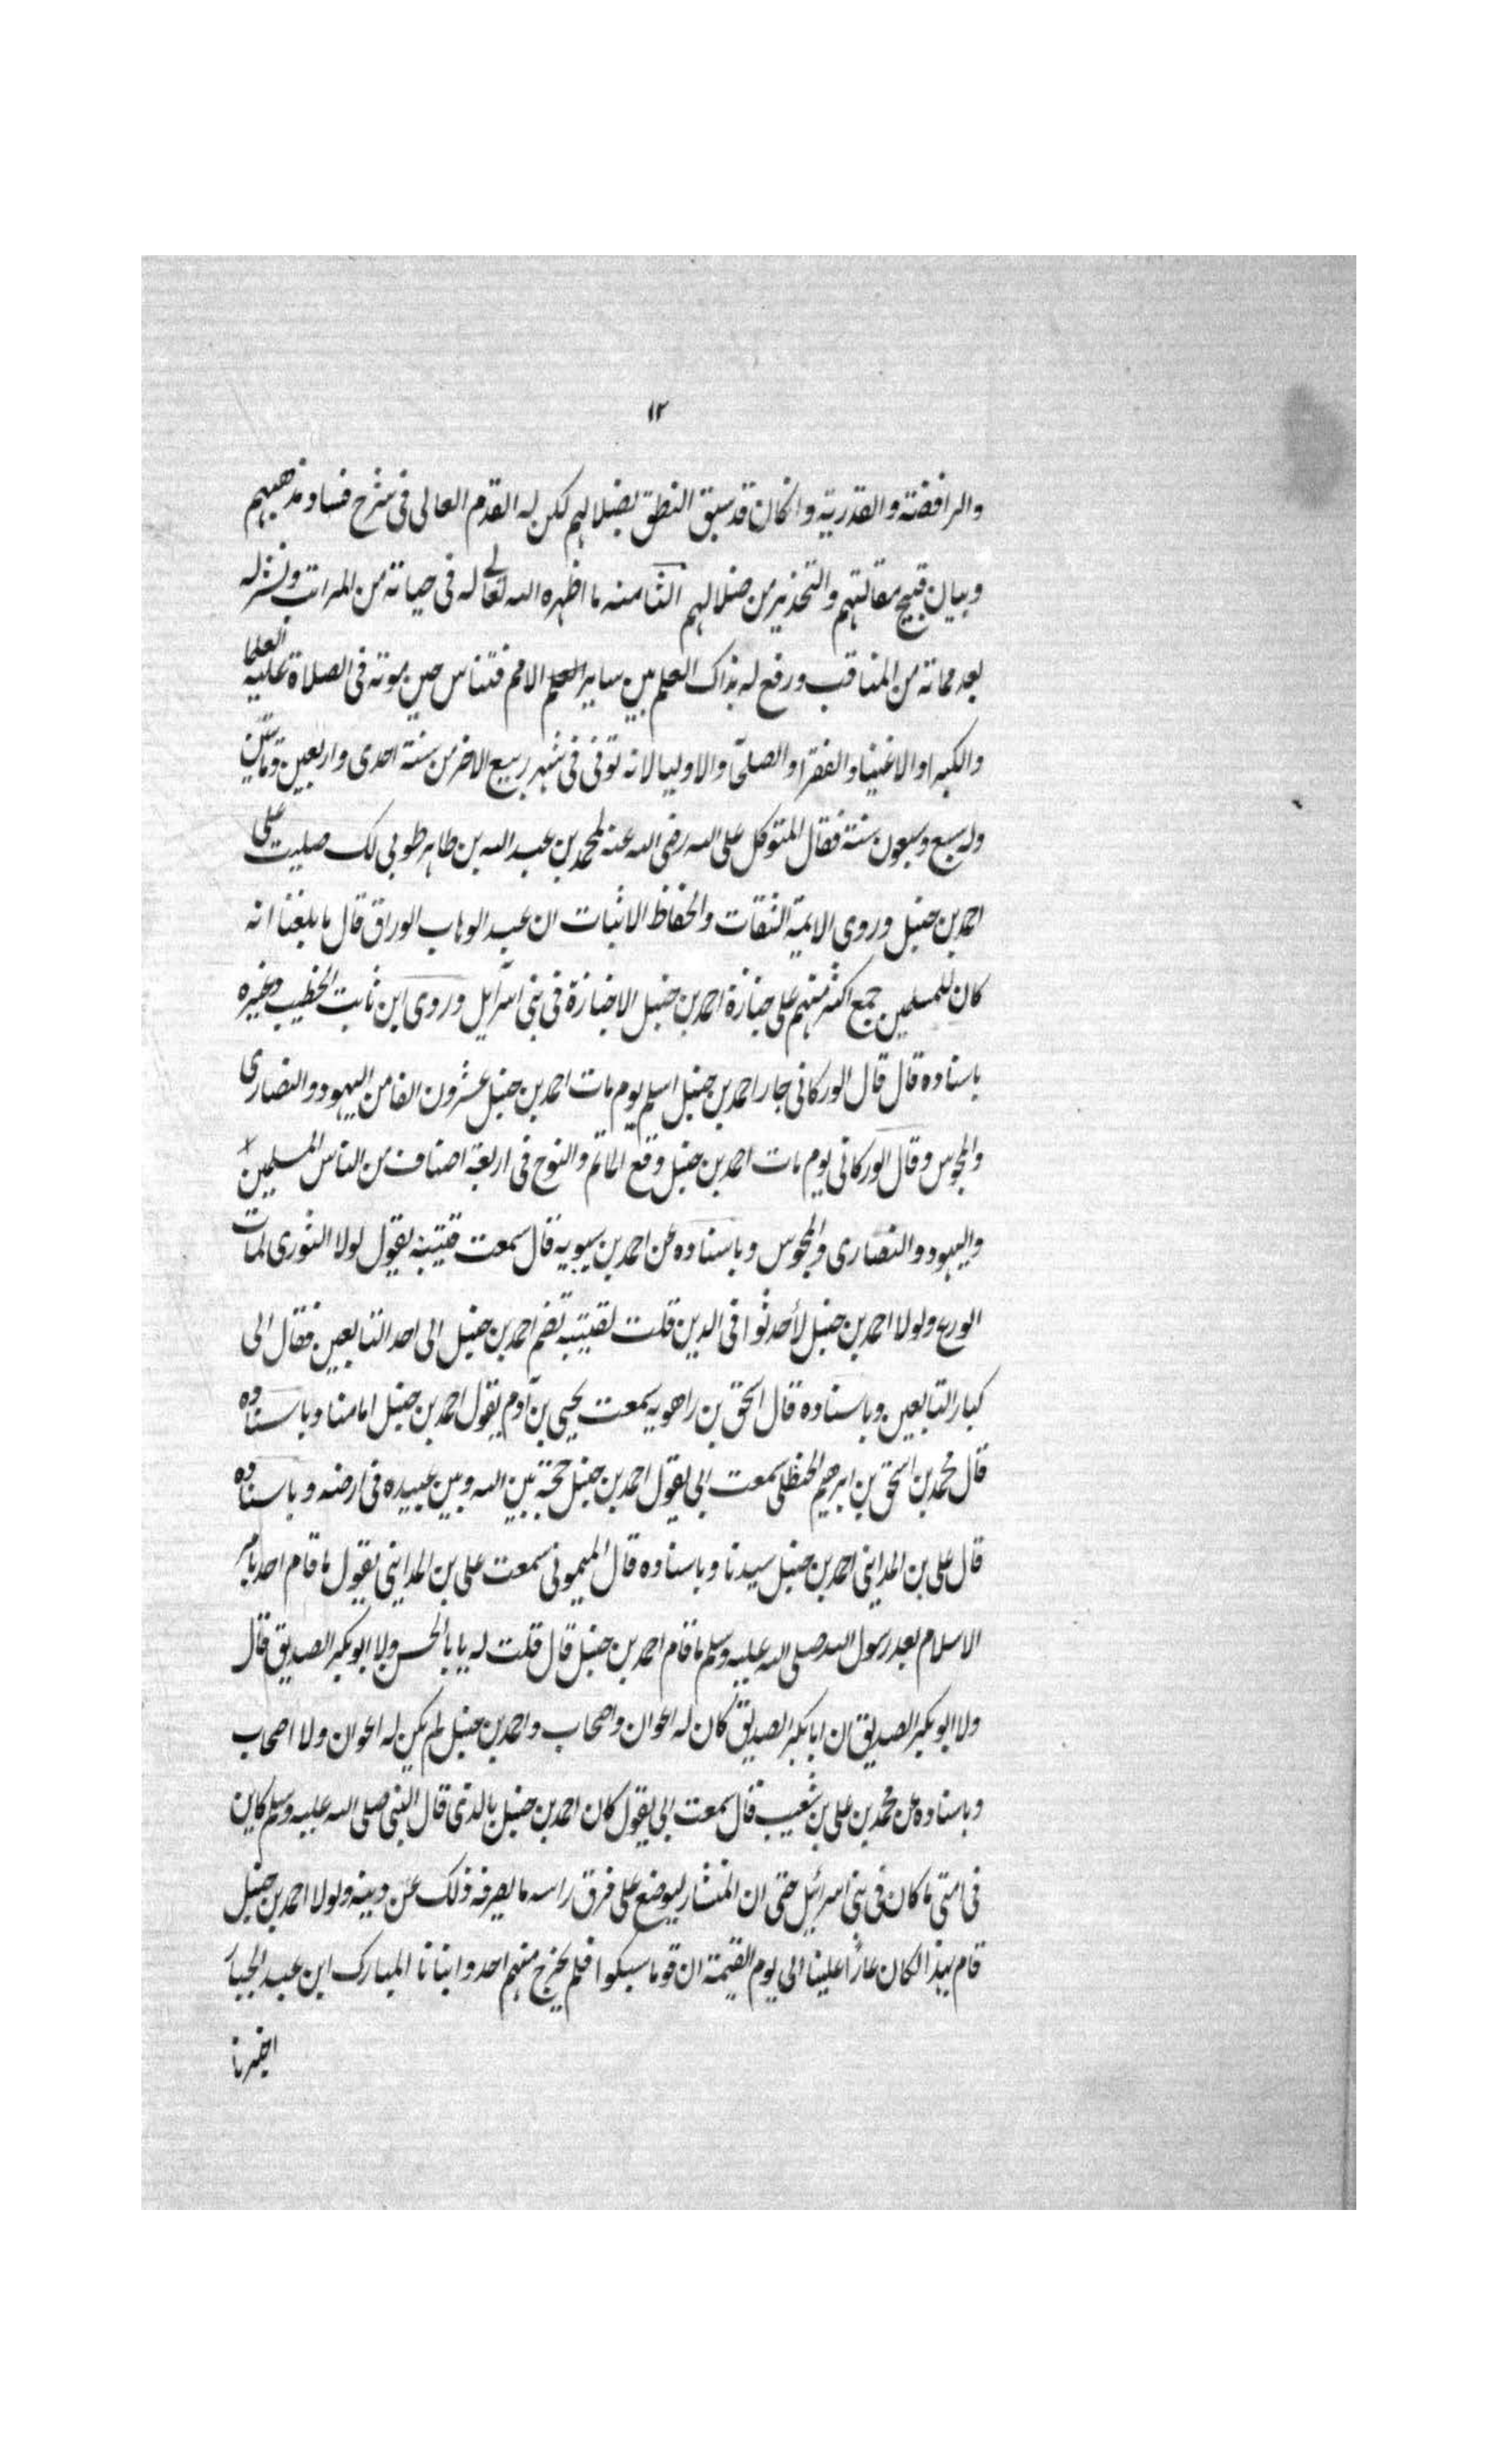 ١٢
والرافضة والقدرية وانكان قد سبق النطق بضلالهم لكن له القدم العالى فى شرح فساد مذهبهم
وبيان قبيح مقالتهم والتحذير من ضلالهم الثامنه ما اظهره الله تعالى له فى حياته من المراتب ونشر له
بعد مماته من المناقب ورفع له بذاك العلم بين ساير الامم فتنافس حين موته فى الصلاة عليه العلما
والكبرا والاغنيا والفقرا والصلحا والاوليا لانه توفى فى شهر ربيع الاخر من سنة احدى واربعين ومائتين
وله سبع وسبعون سنة فقال المتوكل على الله رضى الله عنه لمحمد بن عبد الله بن طاهر طوبى لك صليت على
احمد بن حنبل وروى الايمة الثقات والحفاظ الاثبات ان عبد الوهاب الوراق قال ما بلغنا انه
كان للمسلمين جمع اكثر منهم على جنازة احمد بن حنبل الا جنازة فى بنى اسرآيل وروى ابن ثابت الخطيب وغيره
باسناده قال قال الوركانى جار احمد بن حنبل اسلم يوم مات احمد بن حنبل عشرون الفا من اليهود والنصارى
والمجوس وقال الوركانى يوم مات احمد بن حنبل وقع الماتم والنوح فى اربعة اصناف من الناس المسلمين
واليهود والنصارى والمجوس وباسناده عن احمد بن سيبويه قال سمعت قتيبة يقول لولا الثورى لمات
الورع ولولا احمد بن حنبل لأحدثوا فى الدين قلت لقتيبه تضم احمد بن حنبل الى احد التابعين فقال الى
كبار التابعين وباسناده قال اسحق بن راهويه سمعت يحيى بن آدم يقول احمد بن حنبل امامنا وباسناده
قال محمد بن اسحق بن ابرهيم الحنظلى سمعت ابى يقول احمد بن حنبل حجة بين الله وبين عبيده فى ارضه وباسناده
قال على بن المدايني احمد بن حنبل سيدنا وباسناده قال الميمونى سمعت على بن المدايني يقول ما قام احد بامر
الاسلام بعد رسول الله صلى الله عليه وسلم ما قام احمد بن حنبل قال قلت له يا با الحسن ولا ابو بكر الصديق قال
ولا ابو بكر الصديق ان ابا بكر الصديق كان له اعوان واصحاب واحمد بن حنبل لم يكن له اعوان ولا اصحاب
وباسناده عن محمد بن على بن شعيب قال سمعت ابى يقول كان احمد بن حنبل بالذى قال النبى صلى الله عليه وسلم كاين
فى امتى ما كان فى بنى اسرائيل حتى ان المنشار ليوضع على فرق راسه ما يصرفه ذلك عن دينه ولولا احمد بن حنبل
قام بهذا لكان عارًا علينا الى يوم القيمة ان قوما سبكوا فلم يخرج منهم احد وانبانا المبارك ابن عبد الجبار
اخبرنا